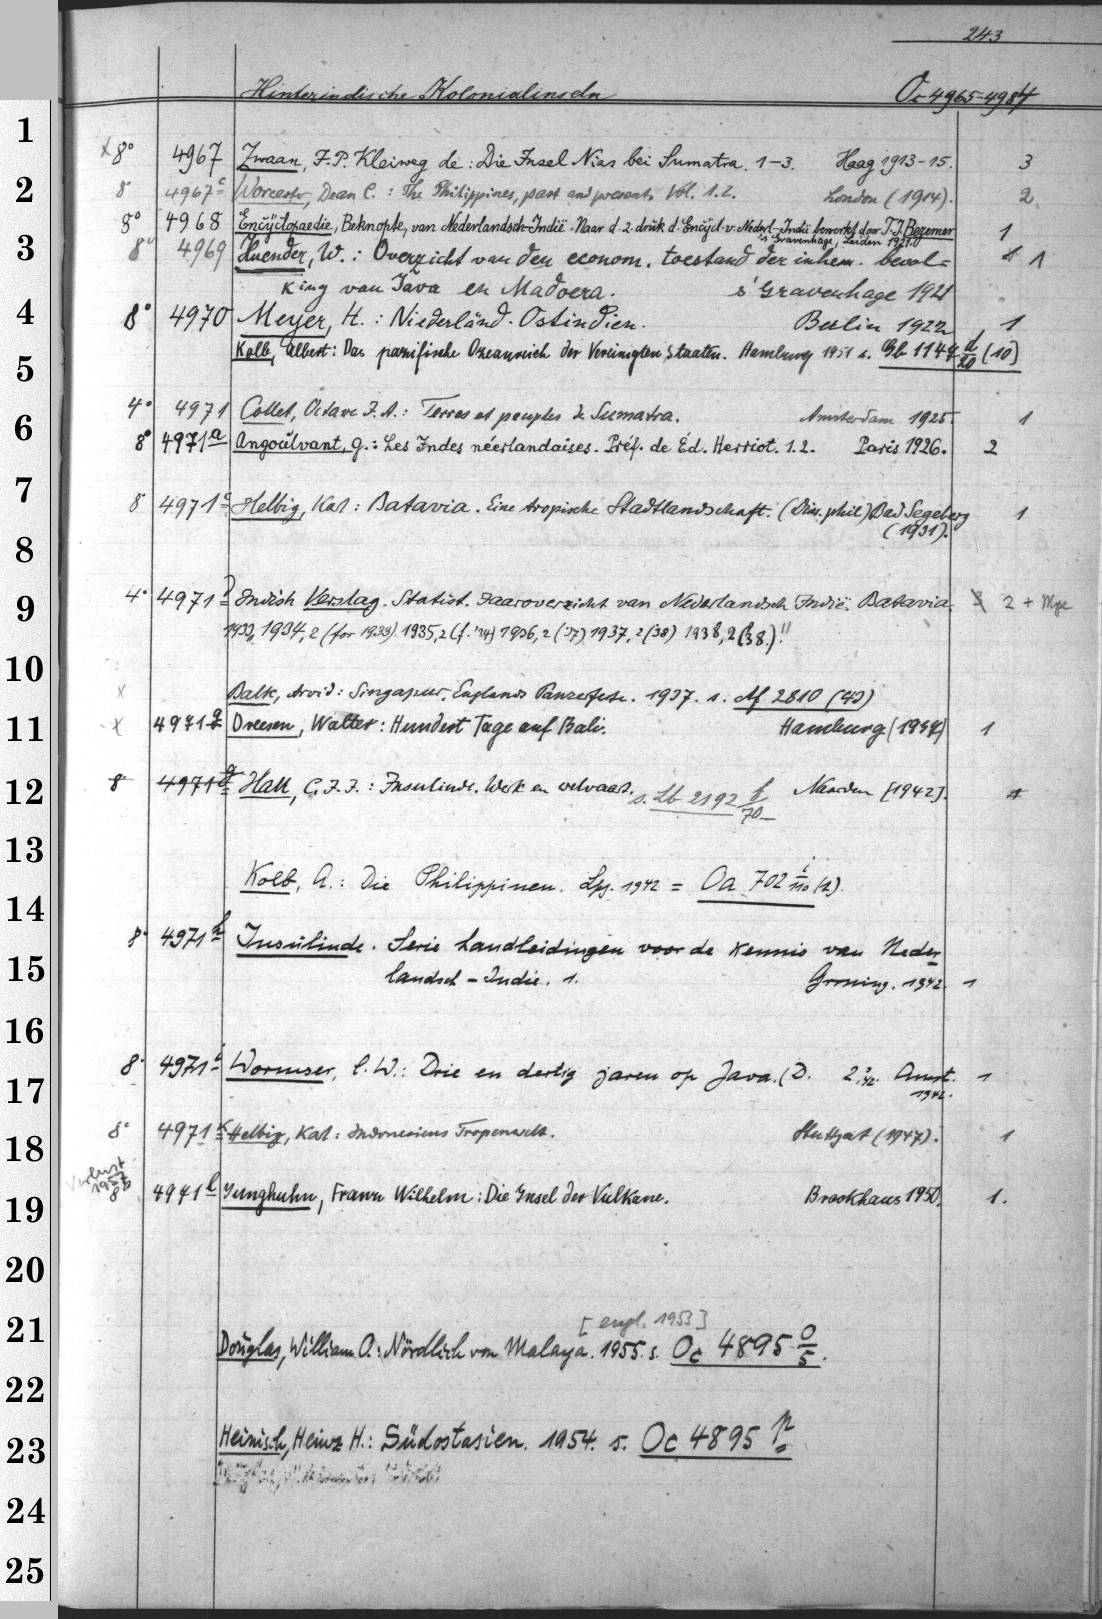 243
Hinterindische Kolonialinseln Oc 4965-4984
1
8° 4967 Zwaan, J. P. Kleiweg de: Die Insel Nias bei Sumatra. 1-3. Haag 1913-15. 3
2
8° 4967c Worcester, Dean C.: The Philippines, past and present. Vol. 1.2. London (1914). 2
8° 4968 Encyclopaedie, Beknopte, van Nederlandsch-Indië. Naar d. 2. druk d. Encycl. v. Nederl.-Indië bewerkt door T. J. Bezemer 1
's Gravenhage, Leiden 1921.
3
8° 4969 Huender, W.: Overzicht van den econom. toestand der inhem. bevol= 1
king van Java en Madoera. s'Gravenhage 1921
4
8° 4970 Meyer, H.: Niederländ. Ostindien. Berlin 1922 1
Kolb, Albert: Das pazifische Ozeanreich der Vereinigten Staaten. Hamburg 1951 s. Gb 1149 d/20 (10)
5
4° 4971 Collet, Octave J. A.: Terres et peuples de Sumatra. Amsterdam 1925. 1
6
8° 4971a Angoulvant, G.: Les Indes néerlandaises. Préf. de Éd. Herriot. 1.2. Paris 1926. 2
7
8° 4971c Helbig, Karl: Batavia. Eine tropische Stadtlandschaft. (Diss. phil) Bad Segeberg 1
(1931).
8
9
4° 4971 Indish Verslag. Statist. Jaaroverzicht van Nederlandsch Indië. Batavia 2 + Mpe
1933, 1934,2 (for 1933) 1935,2 (f. '34) 1936,2 ('37) 1937,2 (38) 1938,2 (38.)!!
10
Balk, Arvid: Singapur, Englands Panzerfeste. 1937. s. Af 2810 (43)
11
4971 Dreesen, Walter: Hundert Tage auf Bali. Hamburg (1937) 1
12
8° 4971g Hall, C. J. J.: Insulinde. Werk en welvaart. s. Lb 2192 f/70 Naarden [1942].
13
Kolb, A.: Die Philippinen. Lpz. 1942 = Oa 702 i/110 (2).
14
8° 4971h Insulinde. Serie handleidingen voor de kennis van Neder
15
landsch-Indie. 1. Groning. 1942. 1
16
8° 4971i Wormser, C. W.: Drie en dertig jaren op Java. (D. 2. Amst. 1
1942.
17
8° 4971k Helbig, Karl: Indonesiens Tropenwelt. Stuttgart (1947). 1
18
Verlust
1957
8° 4971l Junghuhn, Franz Wilhelm: Die Insel der Vulkane. Brockhaus 1950. 1.
19
20
[engl. 1953]
21
Douglas, William O.: Nördlich von Malaya. 1955. s. Oc 4895 o/5.
22
Heinisch, Heinz H.: Südostasien. 1954. s. Oc 4895 p
23
24
25